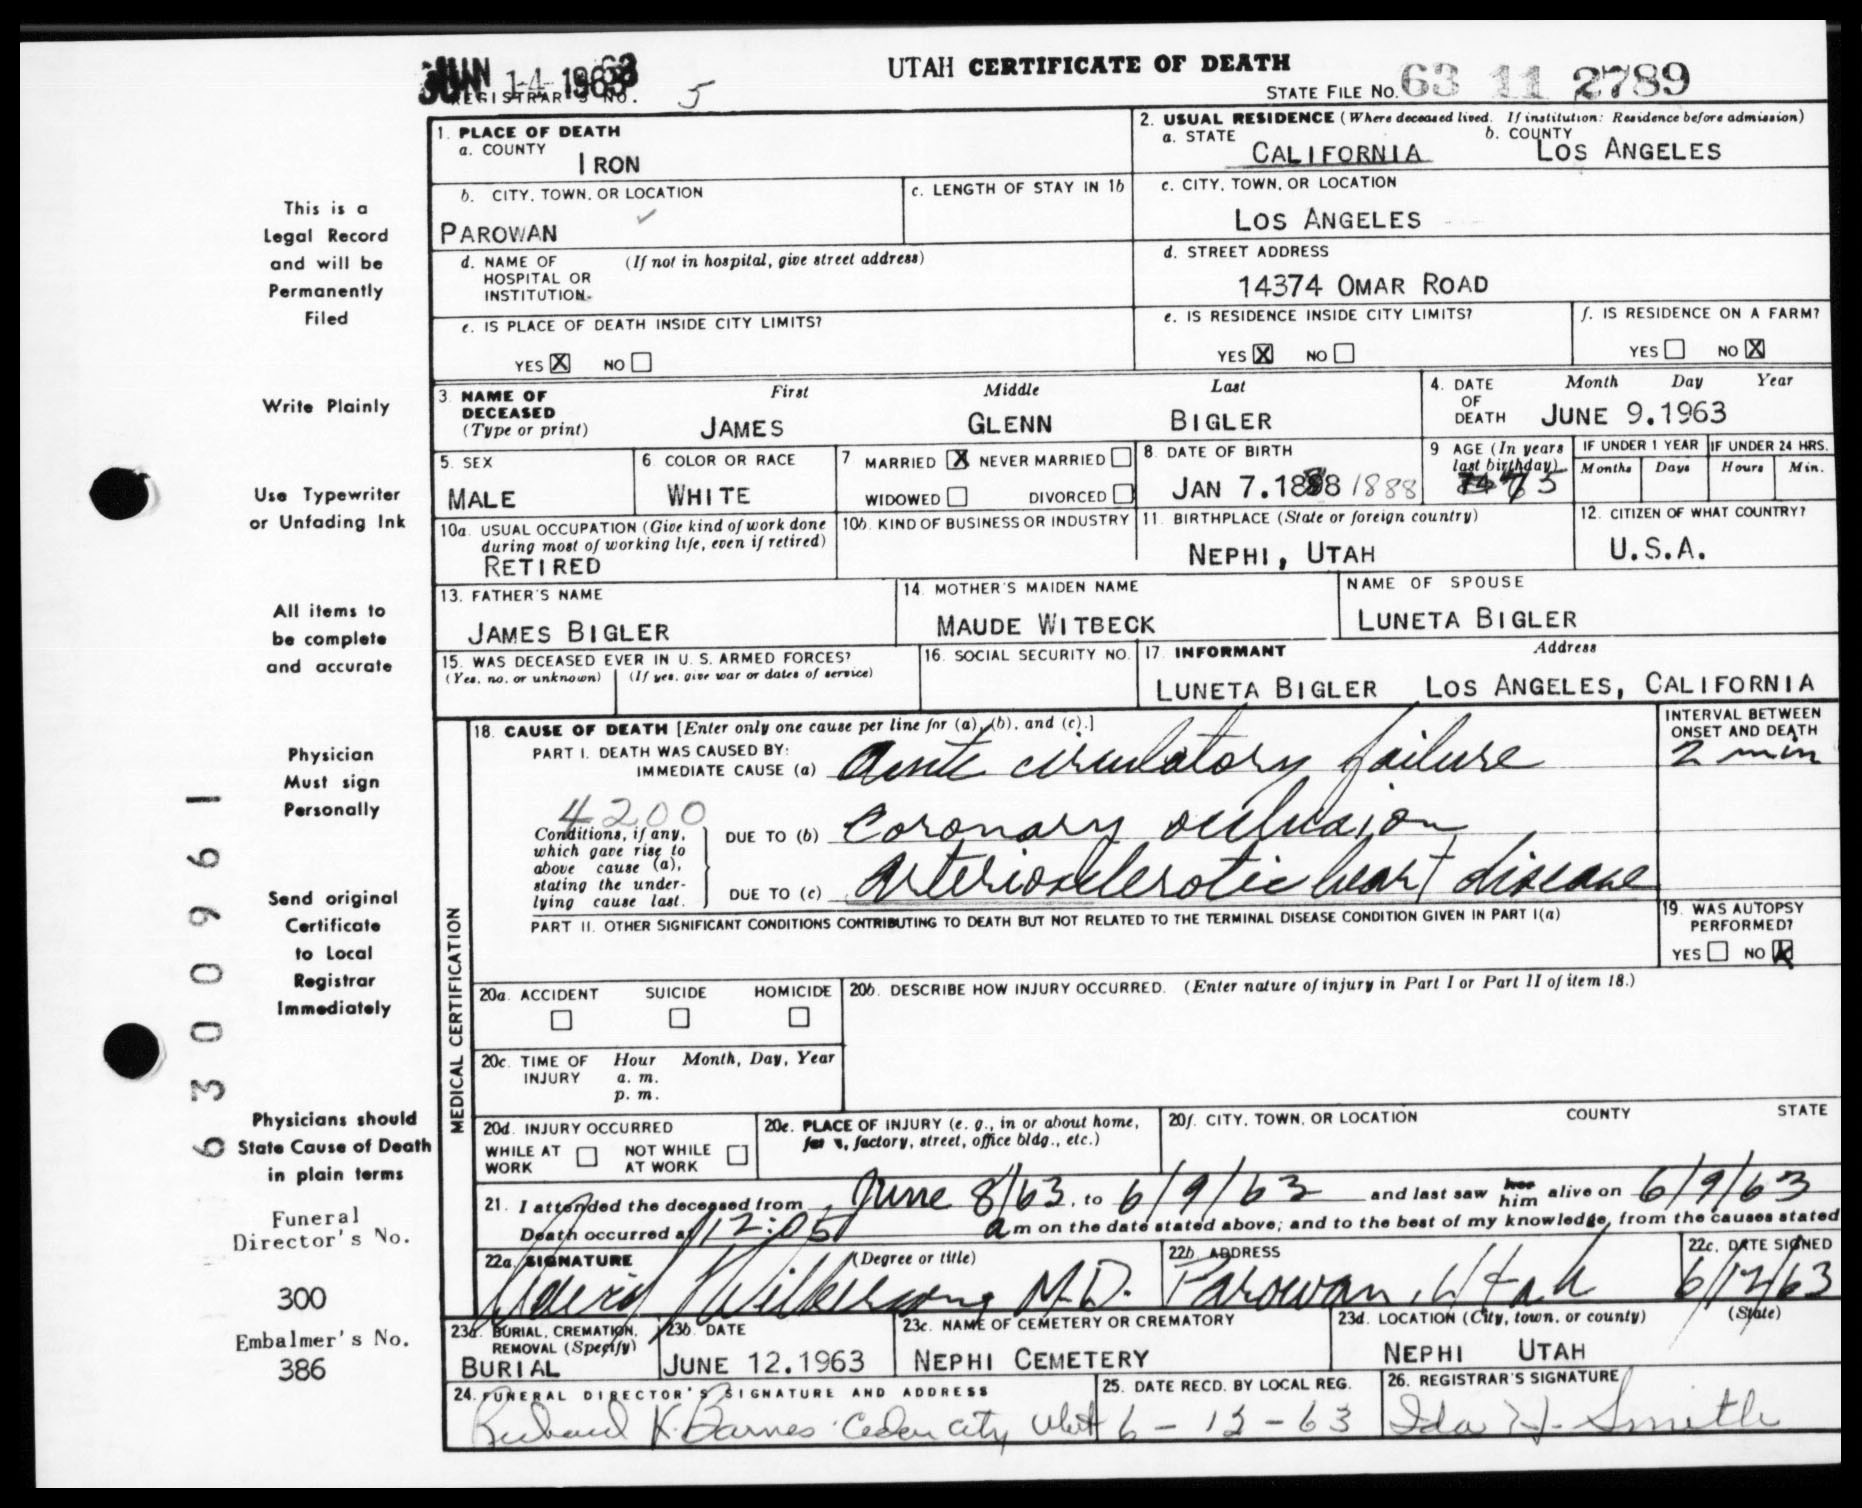 JUN 14 1963
REGISTRAR'S NO. 5
UTAH CERTIFICATE OF DEATH
STATE FILE NO. 63 11 2789
This is a
Legal Record
and will be
Permanently
Filed
Write Plainly
Use Typewriter
or Unfading Ink
All items to
be complete
and accurate
Physician
Must sign
Personally
Send original
Certificate
to Local
Registrar
Immediately
Physicians should
State Cause of Death
in plain terms
Funeral
Director's No.
300
Embalmer's No.
386
6300961
1. PLACE OF DEATH
a. COUNTY
IRON
2. USUAL RESIDENCE (Where deceased lived. If institution: Residence before admission)
a. STATE
CALIFORNIA
b. COUNTY
LOS ANGELES
b. CITY, TOWN, OR LOCATION
PAROWAN
c. LENGTH OF STAY IN 1b
c. CITY, TOWN, OR LOCATION
LOS ANGELES
d. NAME OF (If not in hospital, give street address)
HOSPITAL OR
INSTITUTION
d. STREET ADDRESS
14374 OMAR ROAD
e. IS PLACE OF DEATH INSIDE CITY LIMITS?
YES X NO
e. IS RESIDENCE INSIDE CITY LIMITS?
YES X NO
f. IS RESIDENCE ON A FARM?
YES NO X
3. NAME OF
DECEASED
(Type or print)
First Middle Last
JAMES GLENN BIGLER
4. DATE
OF
DEATH
Month Day Year
JUNE 9.1963
5. SEX
MALE
6. COLOR OR RACE
WHITE
7 MARRIED X NEVER MARRIED
WIDOWED DIVORCED
8. DATE OF BIRTH
JAN 7.1888 1888
9 AGE (In years
last birthday)
75
IF UNDER 1 YEAR
Months Days
IF UNDER 24 HRS.
Hours Min.
10a. USUAL OCCUPATION (Give kind of work done
during most of working life, even if retired)
RETIRED
10b. KIND OF BUSINESS OR INDUSTRY
11. BIRTHPLACE (State or foreign country)
NEPHI, UTAH
12. CITIZEN OF WHAT COUNTRY?
U.S.A.
13. FATHER'S NAME
JAMES BIGLER
14. MOTHER'S MAIDEN NAME
MAUDE WITBECK
NAME OF SPOUSE
LUNETA BIGLER
15. WAS DECEASED EVER IN U. S. ARMED FORCES?
(Yes, no, or unknown) (If yes, give war or dates of service)
16. SOCIAL SECURITY NO.
17. INFORMANT Address
LUNETA BIGLER LOS ANGELES, CALIFORNIA
MEDICAL CERTIFICATION
18. CAUSE OF DEATH [Enter only one cause per line for (a), (b), and (c).]
PART I. DEATH WAS CAUSED BY:
IMMEDIATE CAUSE (a) Acute circulatory failure
INTERVAL BETWEEN
ONSET AND DEATH
2 min
4200
Conditions, if any,
which gave rise to
above cause (a),
stating the under-
lying cause last.
DUE TO (b) Coronary occlusion
DUE TO (c) Arteriosclerotic heart disease
PART II. OTHER SIGNIFICANT CONDITIONS CONTRIBUTING TO DEATH BUT NOT RELATED TO THE TERMINAL DISEASE CONDITION GIVEN IN PART I(a)
19. WAS AUTOPSY
PERFORMED?
YES NO X
20a. ACCIDENT SUICIDE HOMICIDE
20b. DESCRIBE HOW INJURY OCCURRED. (Enter nature of injury in Part I or Part II of item 18.)
20c. TIME OF
INJURY
Hour Month, Day, Year
a. m.
p. m.
20d. INJURY OCCURRED
WHILE AT
WORK
NOT WHILE
AT WORK
20e. PLACE OF INJURY (e. g., in or about home,
factory, street, office bldg., etc.)
20f. CITY, TOWN, OR LOCATION COUNTY STATE
21. I attended the deceased from June 8/63, to 6/9/63 and last saw her him alive on 6/9/63
Death occurred at 12:05 a m on the date stated above; and to the best of my knowledge, from the causes stated
22a. SIGNATURE (Degree or title)
Wilkerson M.D.
22b. ADDRESS
Parowan, Utah
22c. DATE SIGNED
6/12/63
23a. BURIAL, CREMATION,
REMOVAL (Specify)
BURIAL
23b. DATE
JUNE 12.1963
23c. NAME OF CEMETERY OR CREMATORY
NEPHI CEMETERY
23d. LOCATION (City, town, or county) (State)
NEPHI UTAH
24. FUNERAL DIRECTOR'S SIGNATURE AND ADDRESS
Richard K. Barnes Cedar City Utah
25. DATE RECD. BY LOCAL REG.
6-12-63
26. REGISTRAR'S SIGNATURE
Ida H. Smith